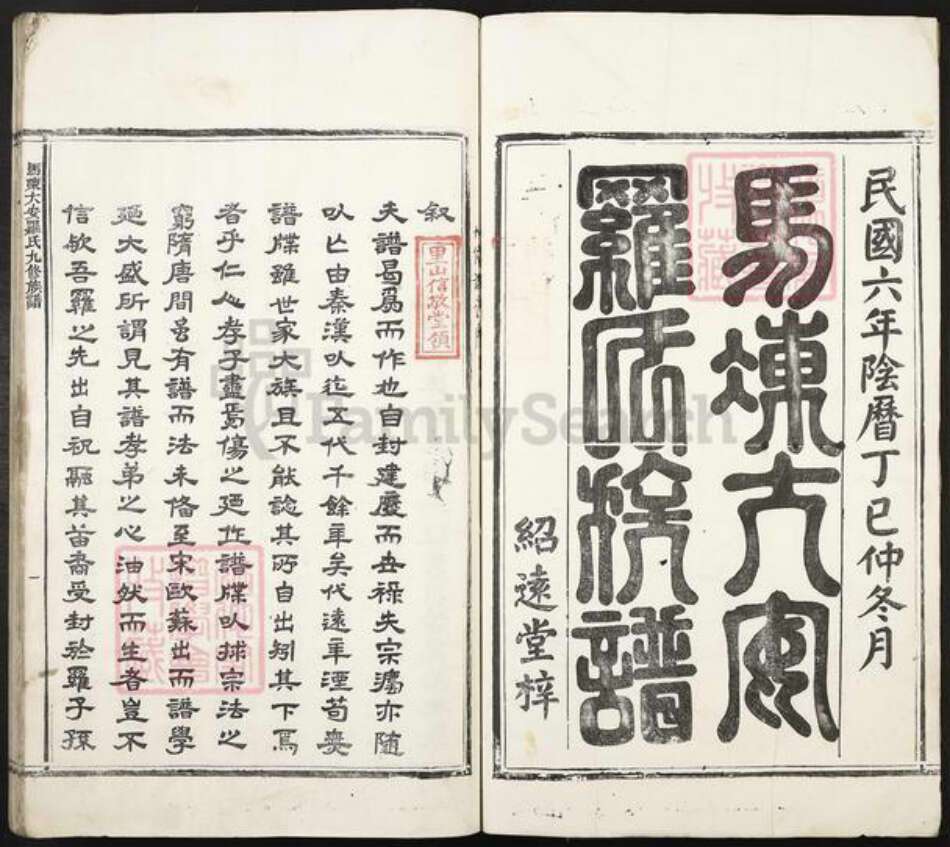 民國六年陰曆丁巳仲冬月
馬埬大安
羅氏族譜
紹遠堂梓
叙
里山信敬堂領
夫譜曷爲而作也自封建廢而世祿失宗灋亦隨
以亡由秦漢以迄五代千餘年矣代遠年湮苟無
譜牒雖世家大族且不能諗其所自出矧其下焉
者乎仁人孝子盡焉傷之廼作譜牒以捄宗法之
窮隋唐間虽有譜而法未偹至宋歐蘇出而譜學
廼大盛所謂見其譜孝弟之心油然而生者豈不
信欤吾羅之先出自祝融其苗裔受封於羅子孫
馬埬大安羅氏九修族譜
一
FamilySearch